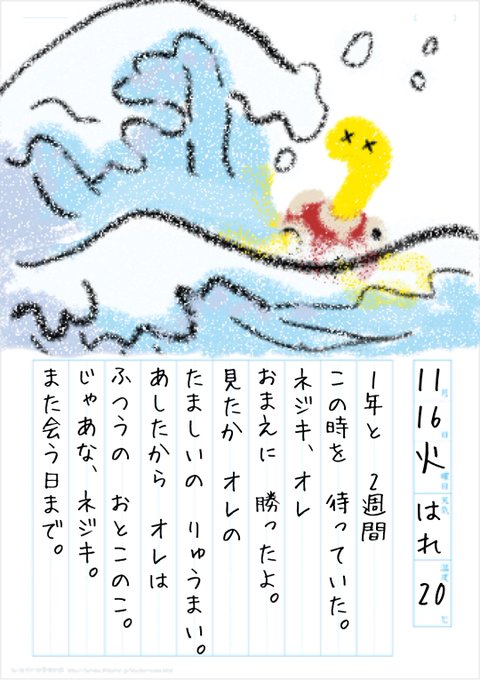 11月16日火曜日
天気 はれ
温度 20℃
1年と 2週間
この時を 待っていた。
ネジキ、オレ
おまえに 勝ったよ。
見たか オレの
たましいの りゅうまい。
あしたから オレは
ふつうの おとこのこ。
じゃあな、ネジキ。
また会う日まで。